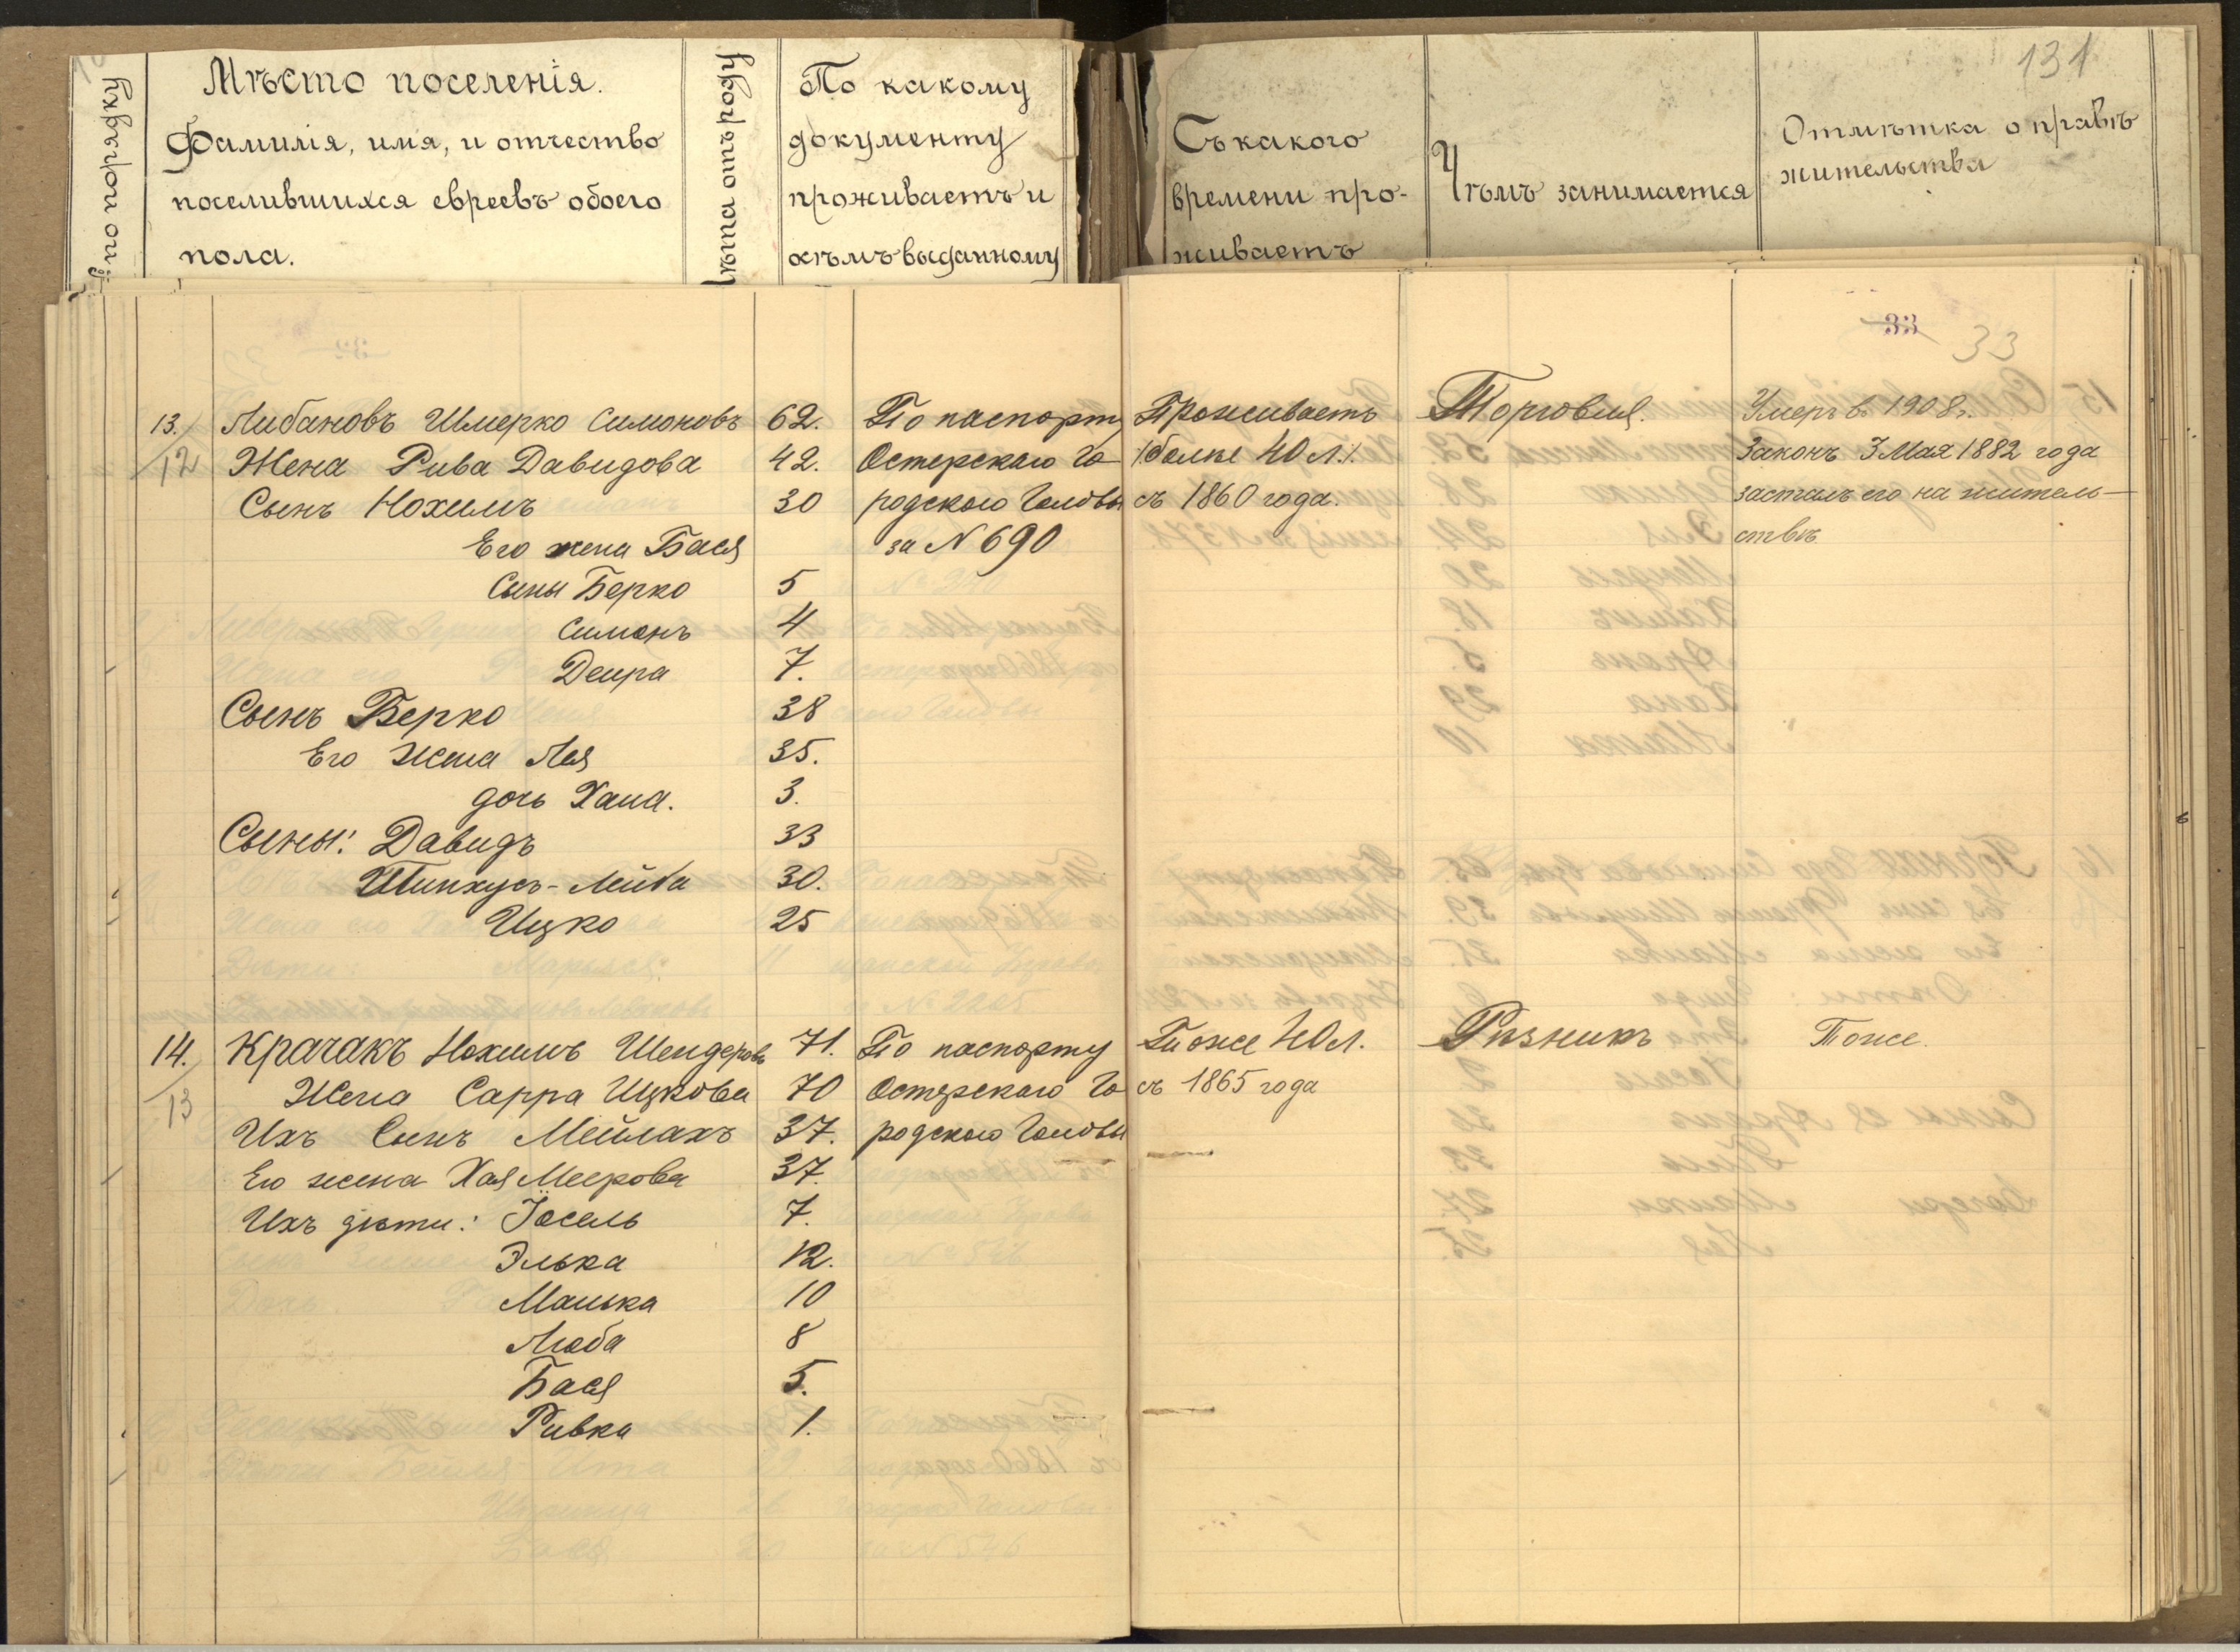 по порядку
Мѣсто поселенія.
Фамилія, имя, и отчество
поселившихся евреевъ обоего
пола.
Лѣта отъ роду
По какому
документу
проживаетъ и
кѣмъ выданному
Съ какого
времени про-
живаетъ
Чѣмъ занимается
131
Отмѣтка о правѣ
жительства
33
33
13. Либановъ Шмерко Симоновъ 62. По паспорту Проживаетъ Торговля. Умеръ в. 1908 г.
12 Жена Рива Давидова 42. Остерскаго Го- /болѣе 40 л./. Законъ 3 Мая 1882 года
Сынъ Нохимъ 30 родского Головы съ 1860 года. засталъ его на житель-
Его жена Бася за N 690 ствѣ
Сыны Берко 5
Симонъ 4
Двира 7.
Сынъ Берко 38
Его жена Лея 35.
дочь Хана. 3.
Сыны: Давидъ 33
Пинхусъ-Лейба 30.
Ицко 25
14. Крачакъ Нохимъ Шендеровъ 71. По паспорту Тоже 40 л. Рѣзникъ Тоже.
13 Жена Сарра Ицкова 70 Остерскаго Го- съ 1865 года
Ихъ Сынъ Мейлахъ 37. родского Головы
Его жена Хая Меерова 37.
Ихъ дѣти: Іосель 7.
Элька 12.
Манька 10
Люба 8
Бася 5.
Ривка 1.